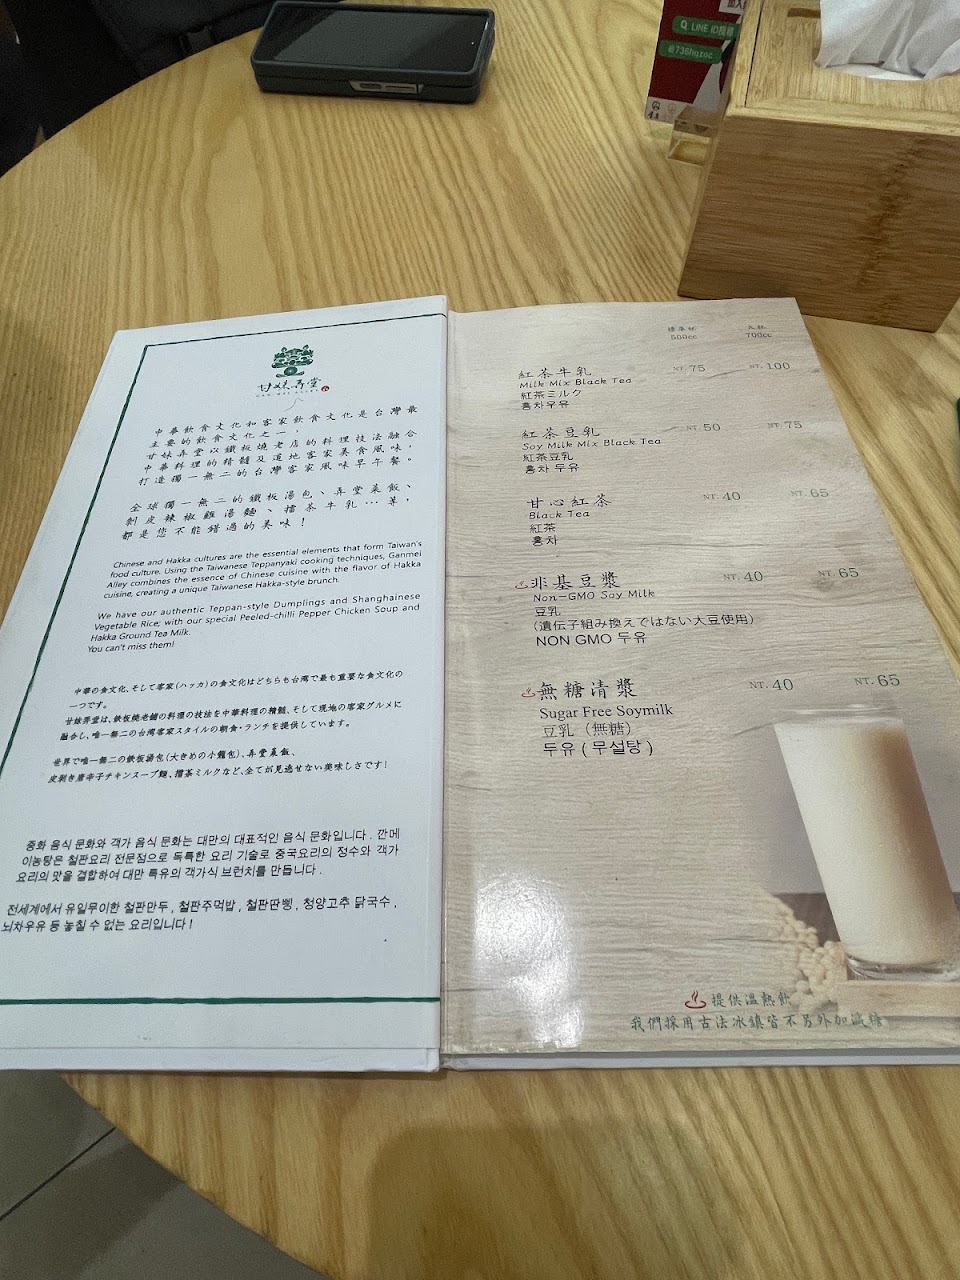 LINE ID搜尋
@736hgzoc
甘妹弄堂
中華飲食文化和客家飲食文化是台灣最
主要的飲食文化之一，
甘妹弄堂以鐵板燒老店的料理技法融合
中華料理的精髓及道地客家美食風味，
打造獨一無二的台灣客家風味早午餐。
全球獨一無二的鐵板湯包、弄堂菜飯、
剝皮辣椒雞湯麵、擂茶牛乳…等，
都是您不能錯過的美味！
Chinese and Hakka cultures are the essential elements that form Taiwan's
food culture. Using the Taiwanese Teppanyaki cooking techniques, Ganmei
Alley combines the essence of Chinese cuisine with the flavor of Hakka
cuisine, creating a unique Taiwanese Hakka-style brunch.
We have our authentic Teppan-style Dumplings and Shanghainese
Vegetable Rice; with our special Peeled-chilli Pepper Chicken Soup and
Hakka Ground Tea Milk.
You can't miss them!
中華の食文化、そして客家(ハッカ)の食文化はどちらも台湾で最も重要な食文化の
一つです。
甘妹弄堂は、鉄板焼老舗の料理の技法を中華料理の精髄、そして現地の客家グルメに
融合し、唯一無二の台湾客家スタイルの朝食・ランチを提供しています。
世界で唯一無二の鉄板湯包(大きめの小籠包)、弄堂菜飯、
皮剥き唐辛子チキンスープ麺、擂茶ミルクなど、全てが見逃せない美味しさです！
중화 음식 문화와 객가 음식 문화는 대만의 대표적인 음식 문화입니다 . 깐메
이농탕은 철판요리 전문점으로 독특한 요리 기술로 중국요리의 정수와 객가
요리의 맛을 결합하여 대만 특유의 객가식 브런치를 만듭니다 .
전세계에서 유일무이한 철판만두 , 철판주먹밥 , 철판딴삥 , 청양고추 닭국수 ,
뇌차우유 등 놓칠 수 없는 요리입니다 !
500cc 700cc
紅茶牛乳 NT.75 NT.100
Milk Mix Black Tea
紅茶ミルク
홍차우유
紅茶豆乳 NT.50 NT.75
Soy Milk Mix Black Tea
紅茶豆乳
홍차 두유
甘心紅茶 NT.40 NT.65
Black Tea
紅茶
홍차
非基豆漿 NT.40 NT.65
Non-GMO Soy Milk
豆乳
（遺伝子組み換えではない大豆使用）
NON GMO 두유
無糖清漿 NT.40 NT.65
Sugar Free Soymilk
豆乳（無糖）
두유 ( 무설탕 )
提供溫熱飲
我們採用古法冰鎮皆不另外加減糖